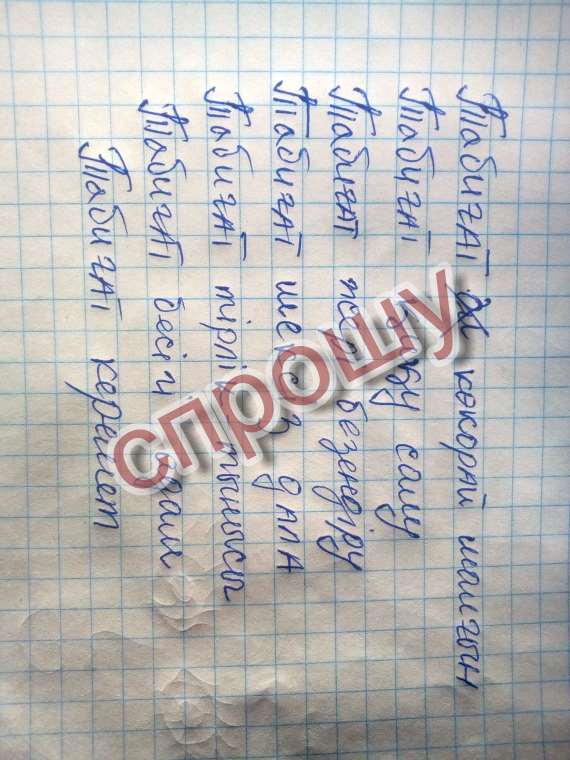 Табиғат көкорай шалғын
Табиғат салу
Табиғат безендіру
Табиғат шексіз дала
Табиғат тірлік тынысы
Табиғат бесігі адам
Табиғат керемет
спрошу